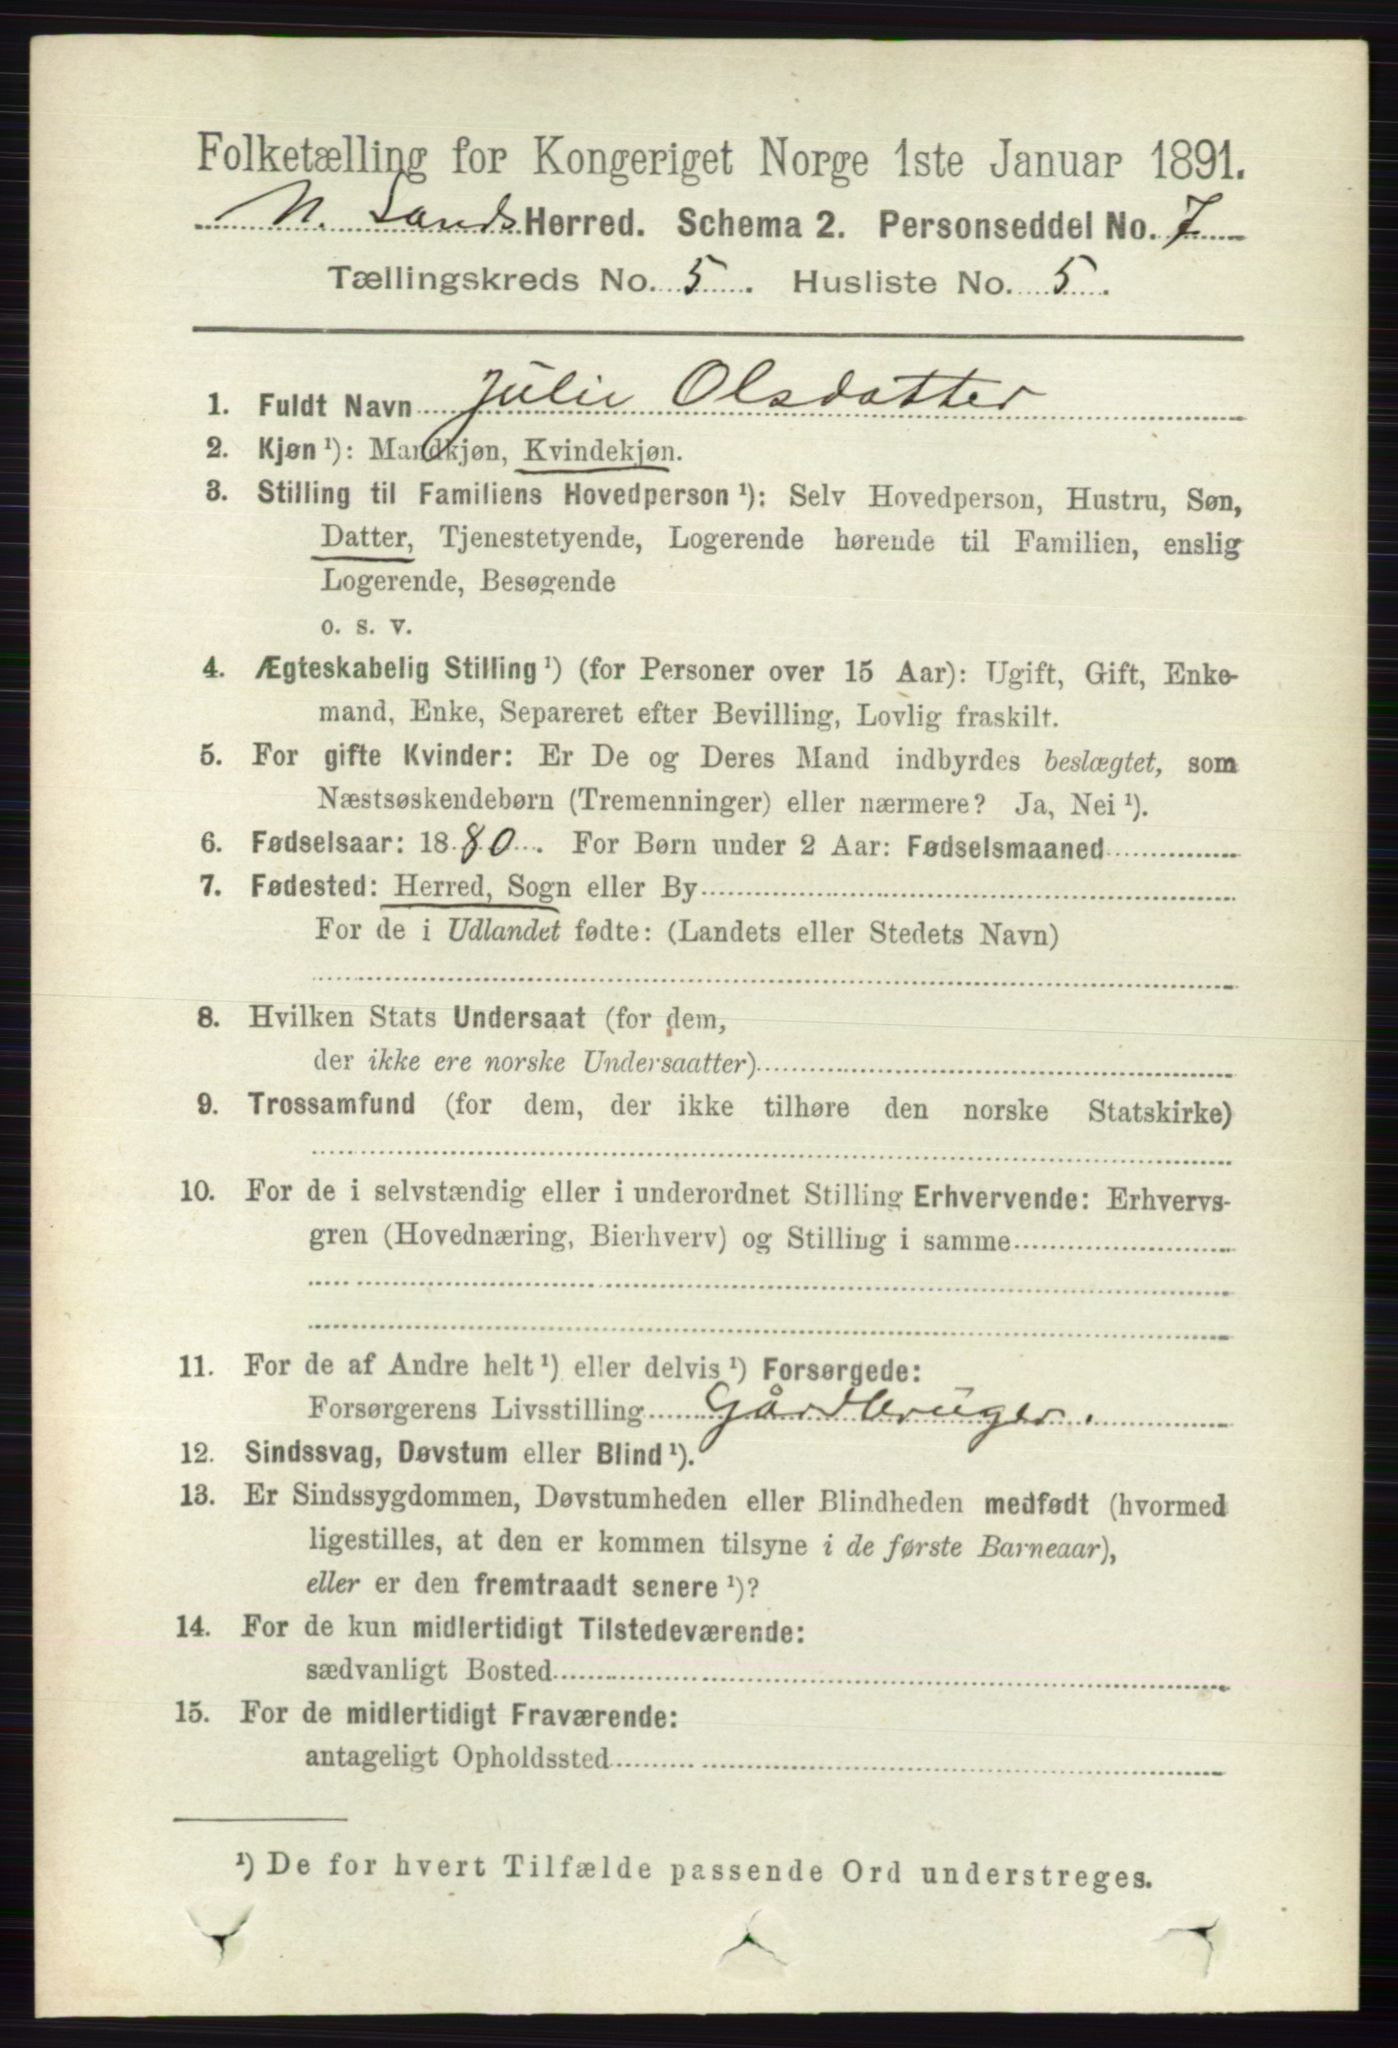 Folketælling for Kongeriget Norge 1ste Januar 1891.
N. Lands Herred. Schema 2. Personseddel No. 7
Tællingskreds No. 5. Husliste No. 5.
1. Fuldt Navn Julie Olsdatter
2. Kjøn ¹): Mandkjøn, Kvindekjøn.
3. Stilling til Familiens Hovedperson ¹): Selv Hovedperson, Hustru, Søn,
Datter, Tjenestetyende, Logerende hørende til Familien, enslig
Logerende, Besøgende
o. s. v.
4. Ægteskabelig Stilling ¹) (for Personer over 15 Aar): Ugift, Gift, Enke-
mand, Enke, Separeret efter Bevilling, Lovlig fraskilt.
5. For gifte Kvinder: Er De og Deres Mand indbyrdes beslægtet, som
Næstsøskendebørn (Tremenninger) eller nærmere? Ja, Nei ¹).
6. Fødselsaar: 1880. For Børn under 2 Aar: Fødselsmaaned
7. Fødested: Herred, Sogn eller By
For de i Udlandet fødte: (Landets eller Stedets Navn)
8. Hvilken Stats Undersaat (for dem,
der ikke ere norske Undersaatter)
9. Trossamfund (for dem, der ikke tilhøre den norske Statskirke)
10. For de i selvstændig eller i underordnet Stilling Erhvervende: Erhvervs-
gren (Hovednæring, Bierhverv) og Stilling i samme
11. For de af Andre helt ¹) eller delvis ¹) Forsørgede:
Forsørgerens Livsstilling Gårdbruger.
12. Sindssvag, Døvstum eller Blind ¹).
13. Er Sindssygdommen, Døvstumheden eller Blindheden medfødt (hvormed
ligestilles, at den er kommen tilsyne i de første Barneaar),
eller er den fremtraadt senere ¹)?
14. For de kun midlertidigt Tilstedeværende:
sædvanligt Bosted
15. For de midlertidigt Fraværende:
antageligt Opholdssted
¹) De for hvert Tilfælde passende Ord understreges.